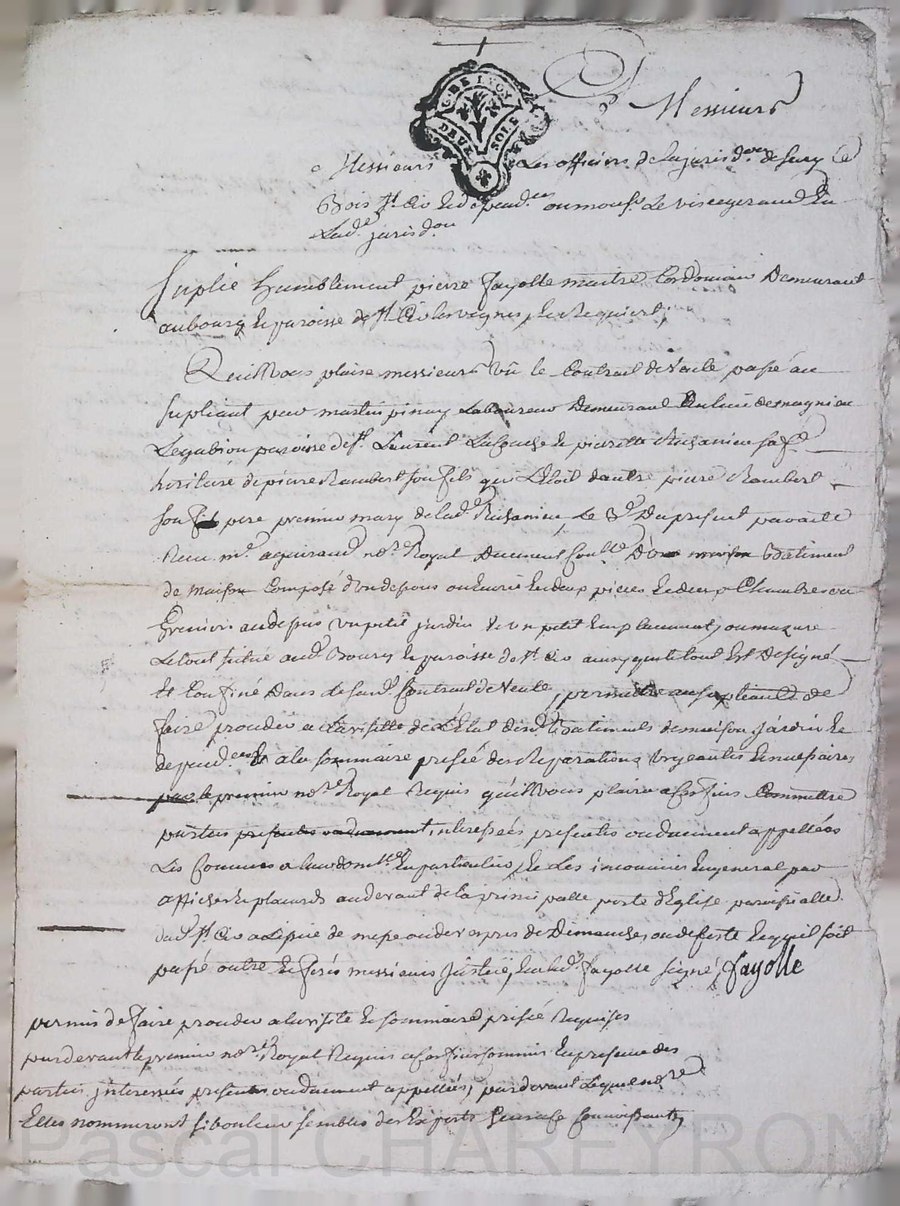 G. DE LYON
DEUX SOLS
Messieurs
Messieurs Les officiers de la juris.on de Sury Le
Bois St Cir et dépend.ces ou mons.r Le vice gerand en
Lad.e jurisd.on
Suplie humblement pierre fayolle maitre Cordonnier Demeurant
au bourg et paroisse de St Cir les vignes, et Requiert,
Quil vous plaise messieurs vû le Contrat de vente passé au
supliant par martin pinay Laboureur Demeurant
paroisse de St Laurent La Conche et pierrette
heritiere de pierre Rambert son fils qui L'etoit dautre pierre Rambert
son pere premier mary de lad.e Le 8.e Du present pardevant
m.e not.re Royal Duement Con.llé D'un Batiment
de maison Composé d'un dessous en deux pieces et deux Chambres ou
Grenier au dessus un petit jardin et un petit Emplacement, ou mazure
Le tout situé aud. Bourg et paroisse de St Cir ainsy que le tout Est Designé
Et Confiné Dans led. Contrat de vente, permettre au supliant de
faire proceder a La visitte de L'Etat desd. Batiments de maison Jardin et
depend.ces Et a la sommaire prisée des Reparations Urgeantes et necessaires
par le premier not.re Royal Requis quil vous plaira a ces fins Commettre
parties interessées presentes ou duement appellées
Les Connues a leur domicille En particulier, et Les inconnues En general par
affiches et placards au devant de la principalle porte d'Eglise paroissialle
dud. St Cir a L'issue de messe ou de vespres de Dimanche, ou de feste Et quil soit
passé outre Et ferés messieurs Justice, fayolle signé, fayolle
permis de faire proceder a la visite et sommaire prisée Requises
pardevant le premier not.re Royal Requis a ces fins Commis En presence des
parties interessées presentes ou duement appellées, pardevant Lequel not.re
Elles nommeront si bon leur semble des Experts Gens a ce Connoissants,
Pascal CHAREYRON